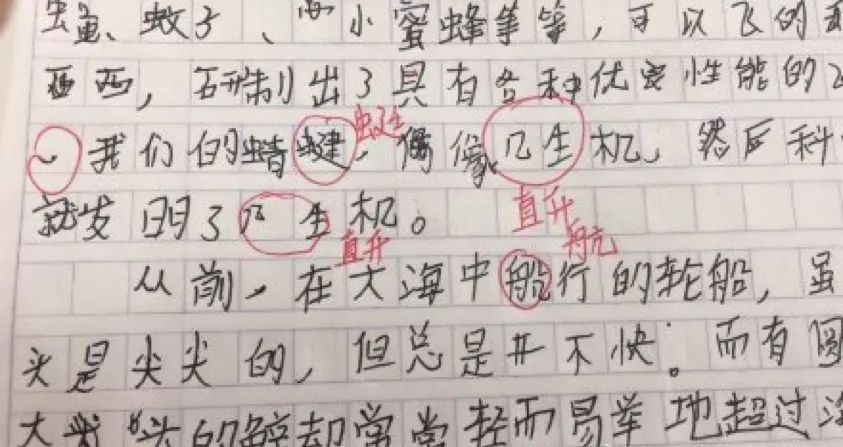 蚊子、小蜜蜂等等，可以飞的
西西，研制出了具有各种优良性能的
蜓
、我们的蜻，偶像几生机、然后科
直升
就发明了几生机。
直升 航
从前，在大海中船行的轮船，虽
头是尖尖的，但总是并不快。而有圆
大头的鲸却常常轻而易举地超过